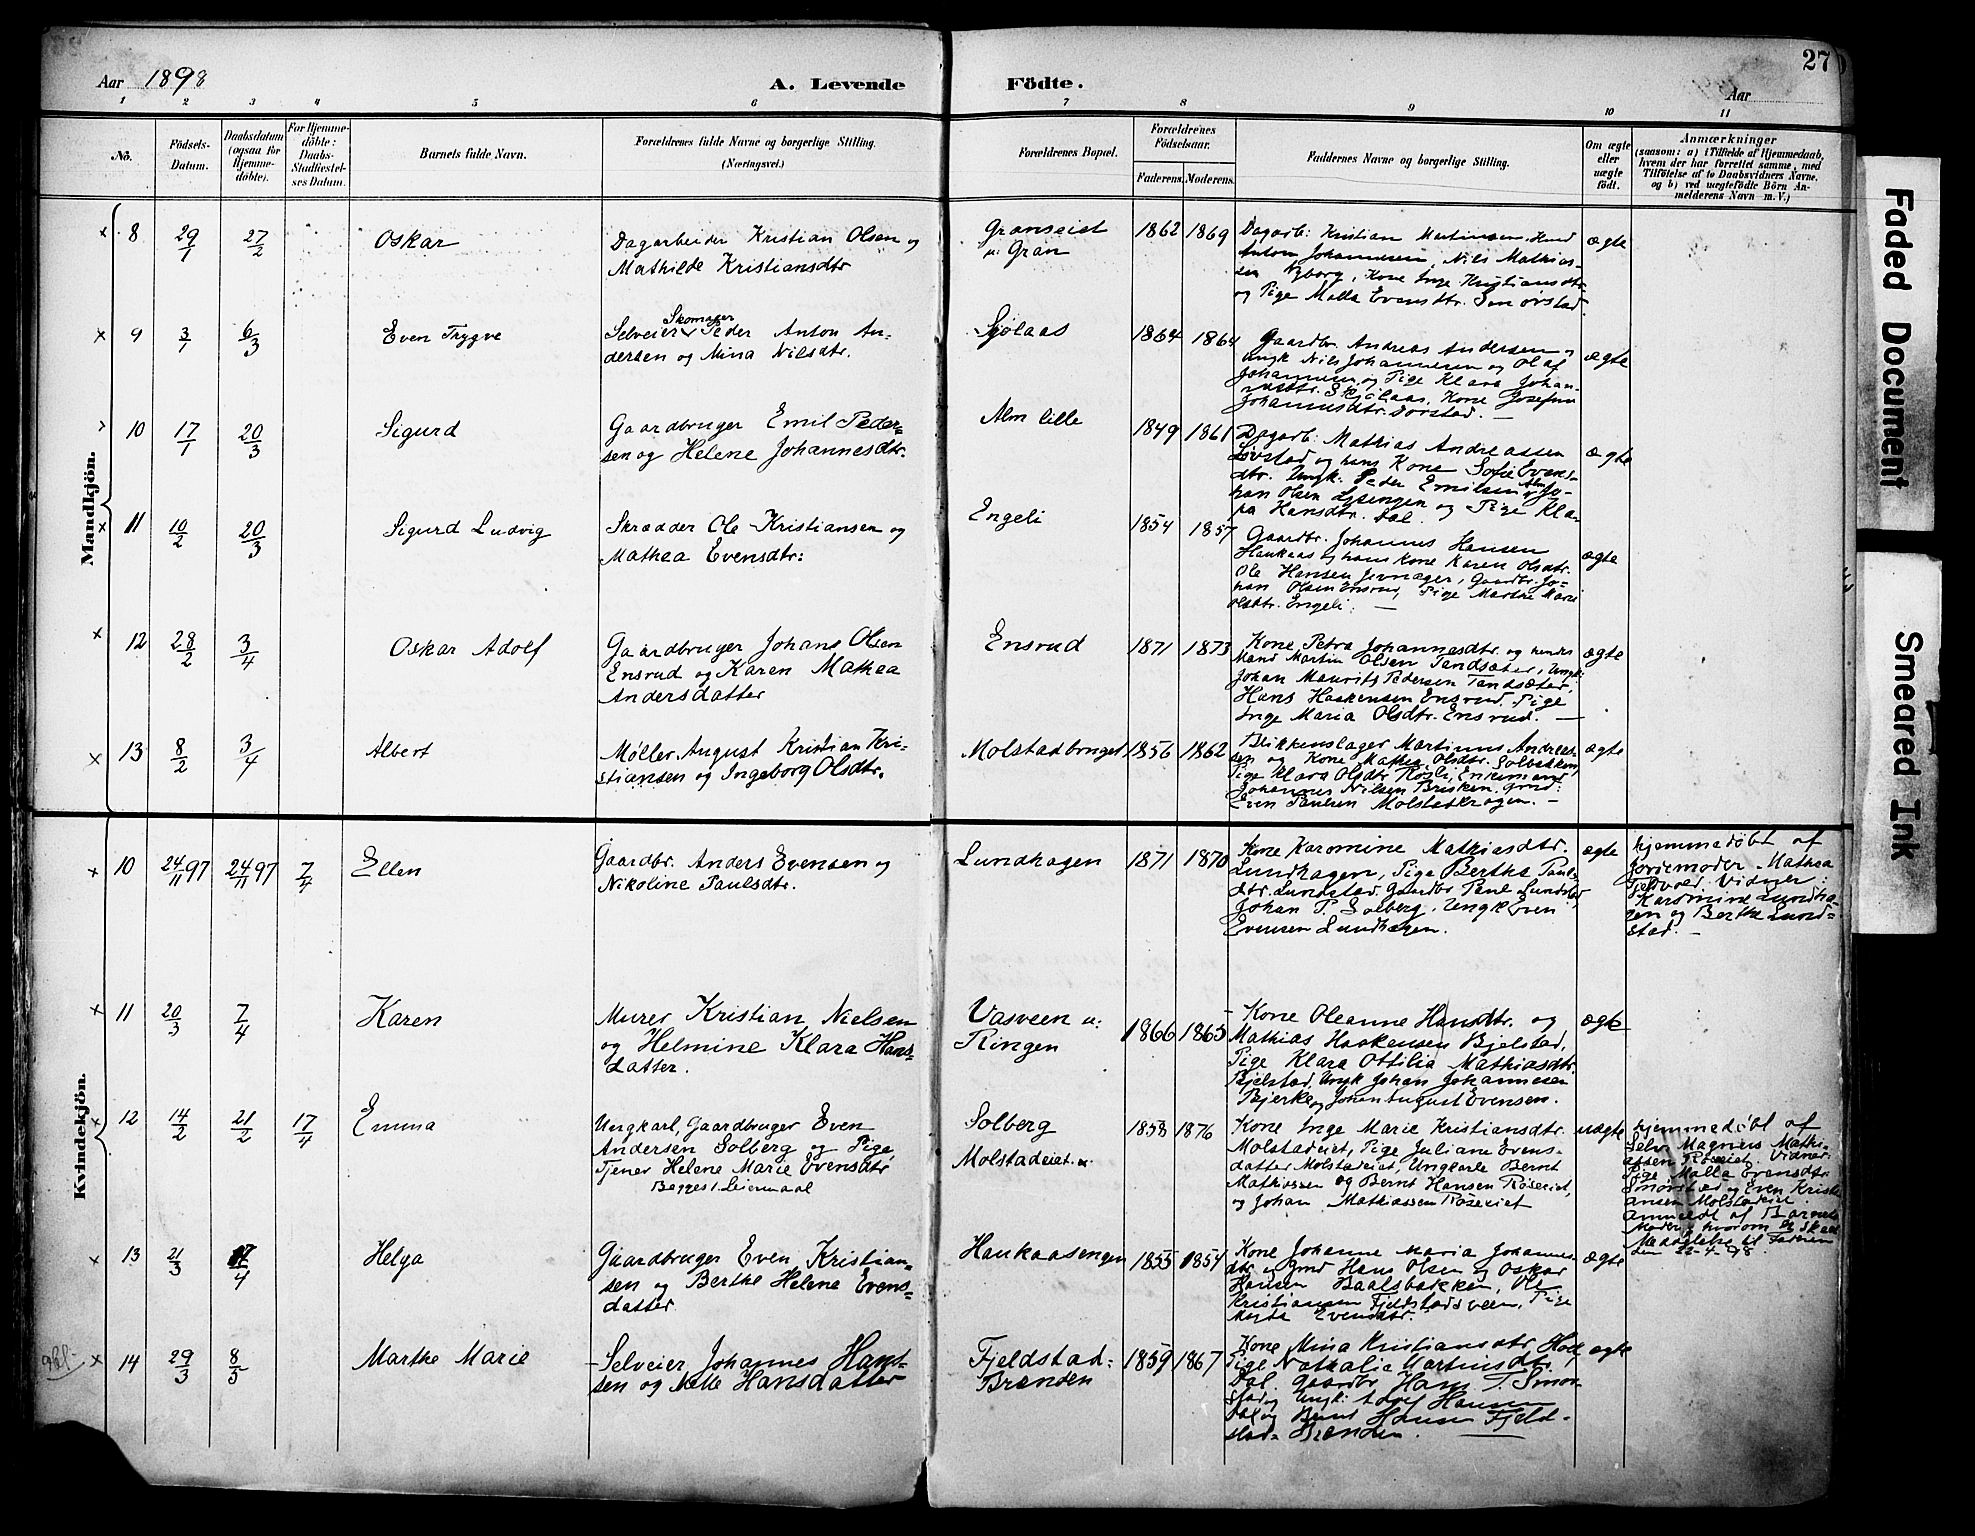 27
Aar 1898
A. Levende Födte.
Aar
1 2 3 4 5 6 7 8 9 10 11
No.
Födsels-
Datum.
Daabsdatum
(ogsaa for
Hjemme-
döbte).
For Hjemme-
döbte:
Daabs-
Stadfæstel-
ses Datum.
Barnets fulde Navn.
Forældrenes fulde Navne og borgerlige Stilling.
(Næringsvei.)
Forældrenes Bopæl.
Forældrenes
Födselsaar.
Faderens. Moderens.
Faddernes Navne og borgerlige Stilling.
Om ægte
eller
uægte
födt.
Anmærkninger
(saasom: a) i Tilfælde af Hjemmedaab,
hvem der har forrettet samme, med
Tilföielse af to Daabsvidners Navne,
og b) ved uægtefödte Börn An-
melderens Navn m. V.)
Mandkjön.
8 29/1 27/2 Oskar
Dagarbeider Kristian Olsen og
Mathilde Kristiansdtr
Granseiet
u: Gran
1862 1869
Dagarb: Kristian Martinsen,
Anton Johannesen, Nils Mathias-
sen Nyborg, Kone Inge Kristiansdtr
og Pige Malla Evensdtr. Smörstad
ægte
9 3/1 6/3 Even Trygve
Skomager
Selveier Peder Anton An-
dersen og Mina Nilsdtr.
Sjolaas
1864 1864
Gaardbr. Andreas Andersen,
Ungk Nils Johannesen og Olaf
Johannesen, og Pige Klara Johan-
nesdtr. Kone Josefine
Johannesdtr.
ægte
10 17/1 20/3 Sigurd
Gaardbruger Emil Peder-
sen og Helene Johannesdtr.
Alm lille
1849 1861
Dagarb: Mathias Andreassen
Lövstad og hans Kone Sofie Evens-
dtr. Ungk. Peder Emilsen Alm, Jo-
han Olsen Lysengen og Pige Kla-
ra Hansdtr. Dal.
ægte
11 10/2 20/3 Sigurd Ludvig
Skrædder Ole Kristiansen og
Mathea Evensdtr:
Engeli
1854 1857
Gaardbr. Johannes Hansen
Haukaas og hans Kone Karen Olsdtr.
Ole Hansen Jevnager, Gaardbr. Jo-
han Olsen Ensrud, Pige Marthe Marie
Olsdtr. Engeli. —
ægte
12 28/2 3/4 Oskar Adolf
Gaardbruger Johans Olsen
Ensrud og Karen Mathea
Andersdatter
Ensrud
1871 1873
Kone Petra Johannesdtr og hendes
Mand Martin Olsen Tandsæter, Ungk:
Johan Mauritz Pedersen Tandsæter,
Hans Haakensen Ensrud, Pige
Inge Maria Olsdtr. Ensrud. —
ægte
13 8/2 3/4 Albert
Møller August Kristian Kri-
stiansen og Ingeborg Olsdtr.
Molstadbruget
1856 1862
Blikkenslager Martinus Andreas-
sen og Kone Mathea Olsdtr. Solbakken,
Pige Klara Olsdtr Röslie, Enkemand
Johannes Nilsen Brisken, Gmd:
Even Paulsen Molstadkragen. —
ægte
Kvindekjön.
10 24/11 97 24/11 97 7/4 Ellen
Gaardbr. Anders Evensen og
Nikoline Paulsdtr.
Lundhagen
1871 1870
Kone Karomine Mathiasdtr.
Lundhagen, Pige Berthe Pauls-
dtr. Lundstad, Gaardbr Paul Lundstad,
Johan P. Solberg, Ungk Even
Evensen Lundhagen.
ægte
hjemmedöbt af
Jordemoder Mathea
Fjeldvold. Vidner:
Karomine Lundha-
gen og Berthe Lund-
stad. —
11 20/3 7/4 Karen
Murer Kristian Nielsen
og Helmine Klara Hans-
datter.
Vasveen u:
Ringen
1866 1865
Kone Oleanne Hansdtr. og
Mathias Haakensen Bjelstad,
Pige Klara Ottilia Mathiasdtr.
Bjelstad, Ungk Johan Johannesen
Bjerke og Johan August Evensen.
ægte
12 14/2 21/2 17/4 Emma
Ungkarl, Gaardbruger Even
Andersen Solberg og Pige,
Tjener Helene Marie Evensdtr
Begges 1. Leiermaal
Solberg
Molstadeiet.
1858 1876
Kone Inge Marie Kristiansdtr.
Molstadeiet, Pige Juliane Evens-
datter Molstadeiet, Ungkarle Bernt
Mathiassen og Bernt Hansen Röseeiet,
og Johan Mathiassen Röseeiet
uægte
hjemmedöbt af
Selv. Magnus Mathi-
assen Röseeiet. Vidner:
Pige Malla Evensdtr.
Smörstad og Even Kristi-
ansen Molstadeiet.
Anmeldt af Barnets
Moder, hvorom
Meddelelse til Faderen
den 22-4-98.
13 21/3 17/4 Helga
Gaardbruger Even Kristian-
sen og Berthe Helene Evens-
datter.
Haukaasengen
1855 1854
Kone Johanne Maria Johannes-
dtr og Gmd Hans Olsen og Oskar
Hansen Baalsbakken, Ole
Kristiansen Fjeldstadsveen, Pige
Evensdtr.
ægte
14 29/3 8/5 Marthe Marie
Selveier Johannes Han-
sen og Mette Hansdatter
Fjeldstad-
Brænden
1859 1867
Kone Mina Kristiansdtr,
Pige Nathalia Martinsdtr.
Dal. Gaardbr Hans T. Smör-
stad, Ungk: Adolf Hansen
Dal og Bernt Hansen Fjeld-
stad-Brænden.
ægte
Faded Document
Smeared Ink